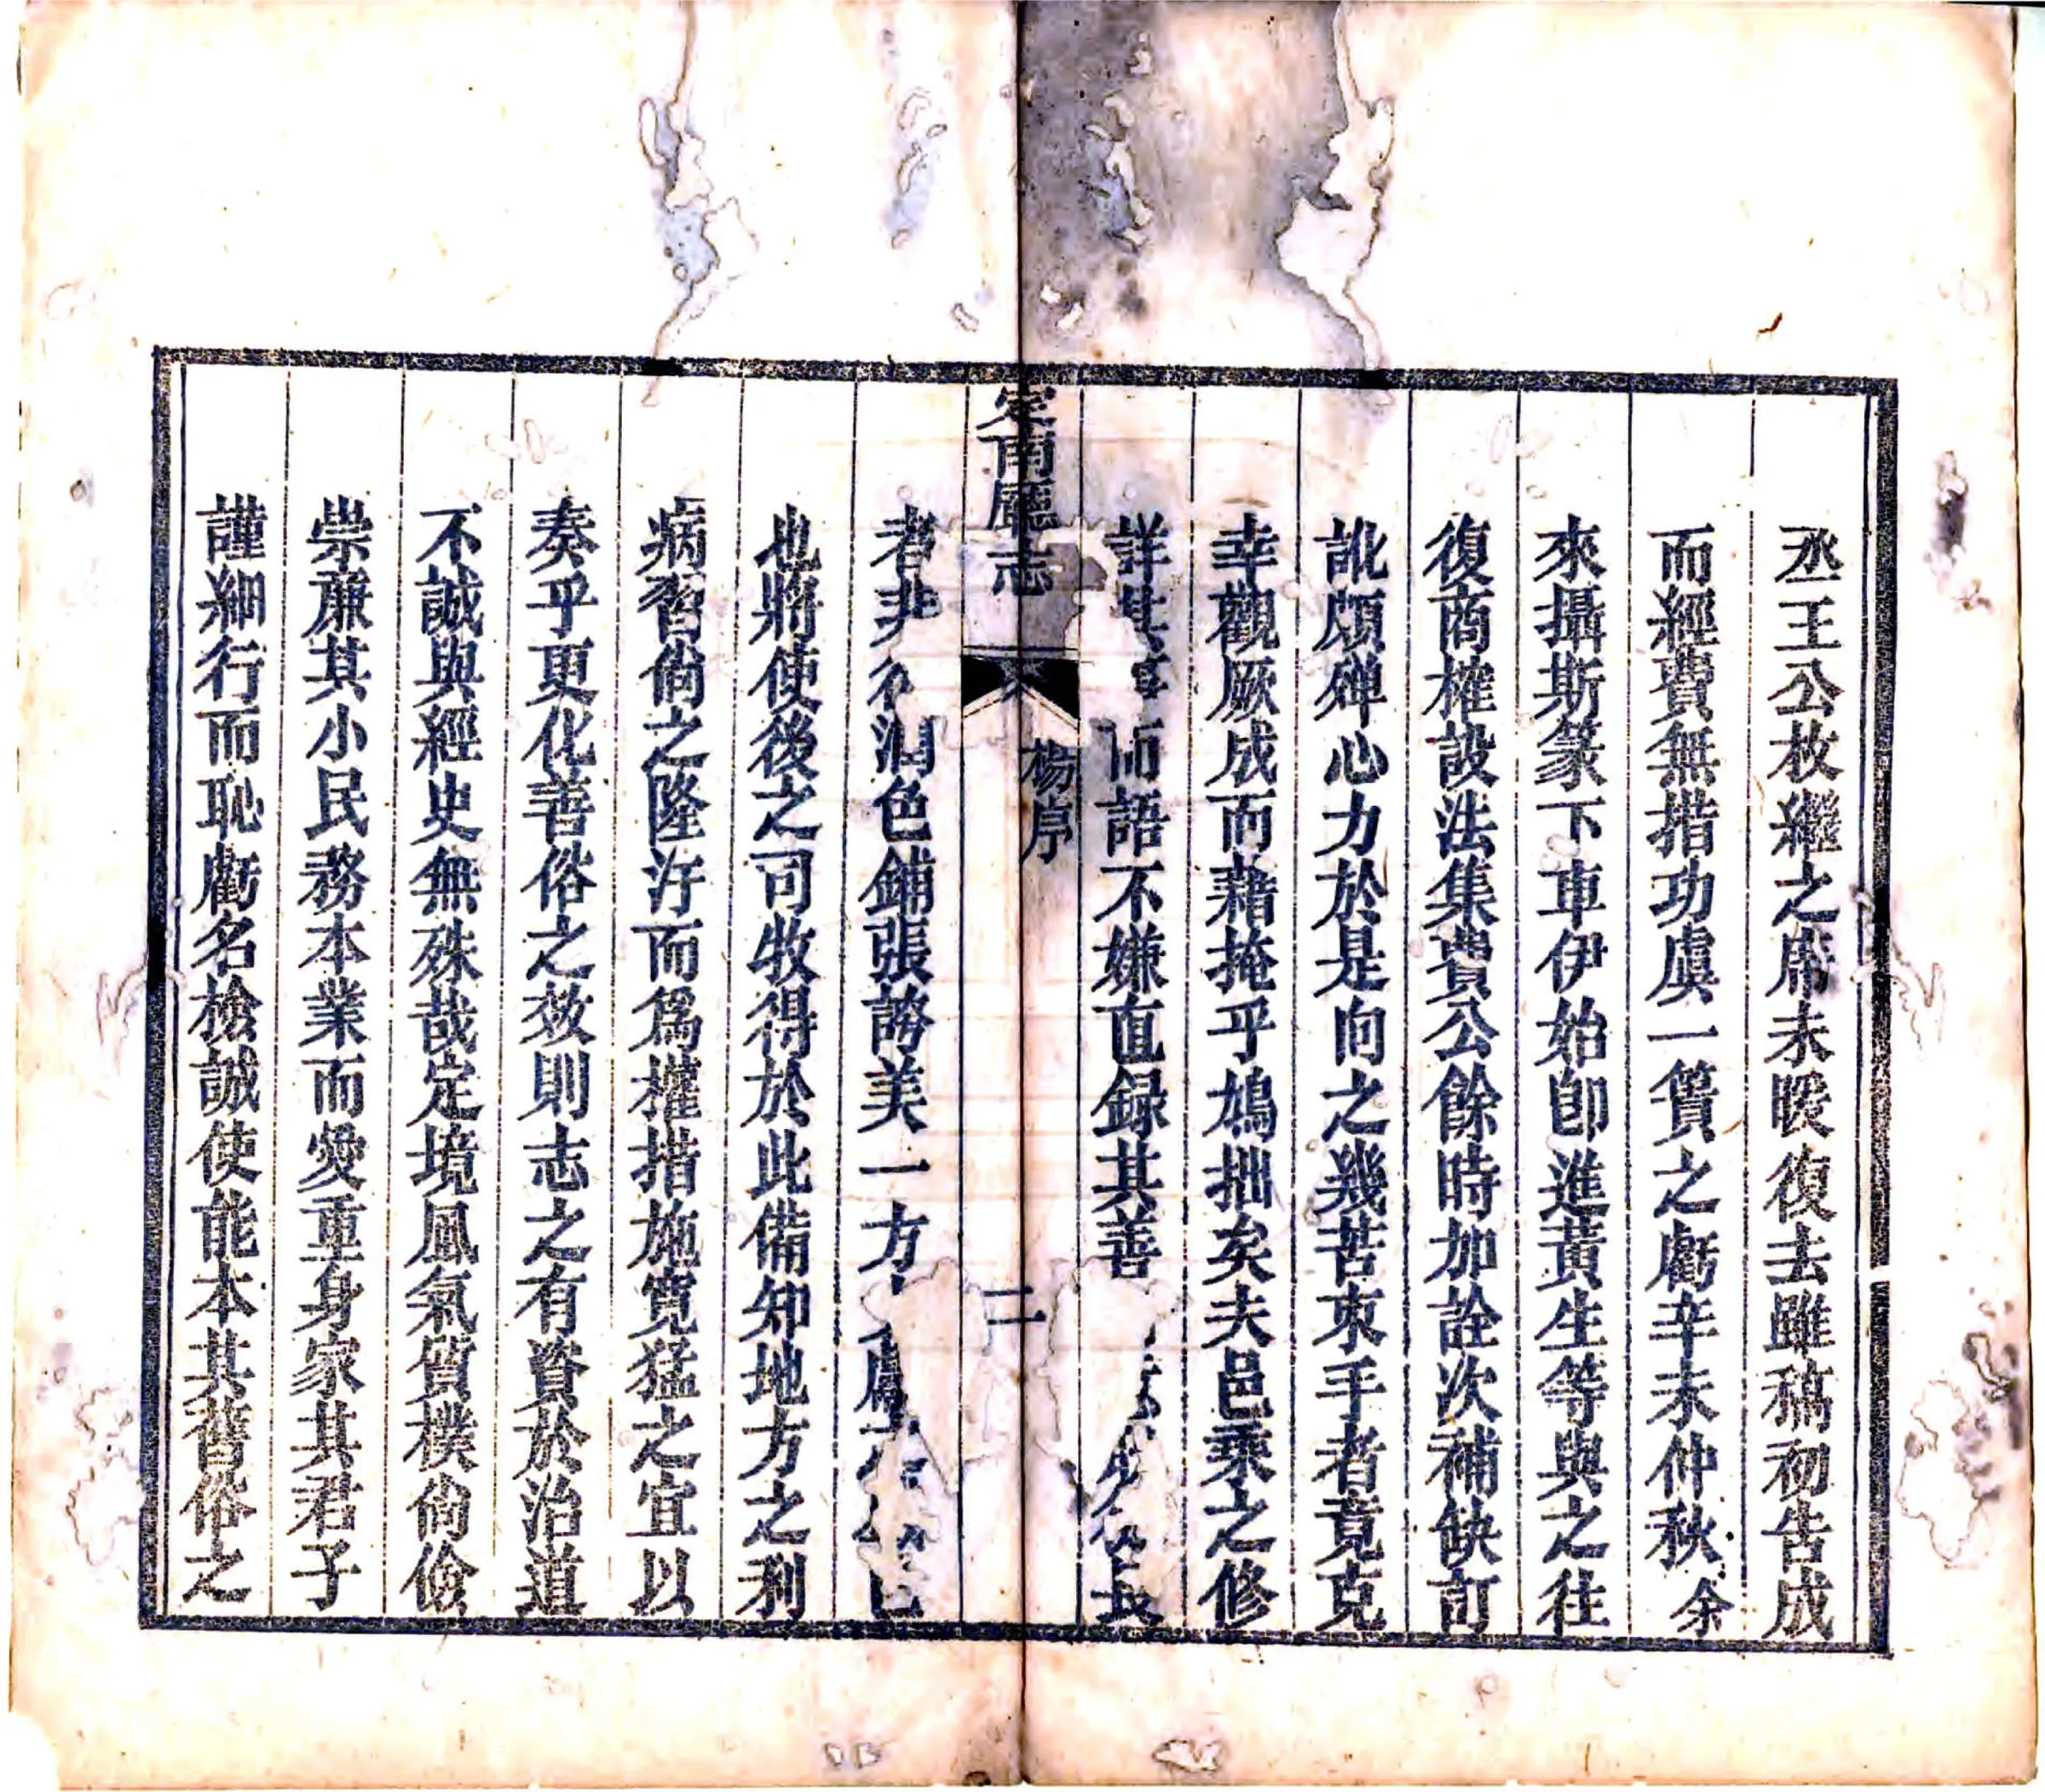 丞王公枚繼之席未暖復去雖稿初告成
而經費無措功虞一簣之虧辛未仲秋余
來攝斯篆下車伊始卽進黃生等與之往
復商榷設法集費公餘時加詮次補缺訂
訛頗殫心力於是向之幾苦束手者竟克
幸觀厥成而藉掩乎鳩拙矣夫邑乘之修
詳其事而語不嫌直録其善
定南廳志
楊序
二
者非 潤色鋪張誇美一方
也將使後之司牧得於此備知地方之利
病習尚之隆汙而爲權措施寬猛之宜以
奏乎更化善俗之效則志之有資於治道
不誠與經史無殊哉定境風氣質樸尙儉
崇廉其小民務本業而愛重身家其君子
謹細行而恥虧名檢誠使能本其舊俗之